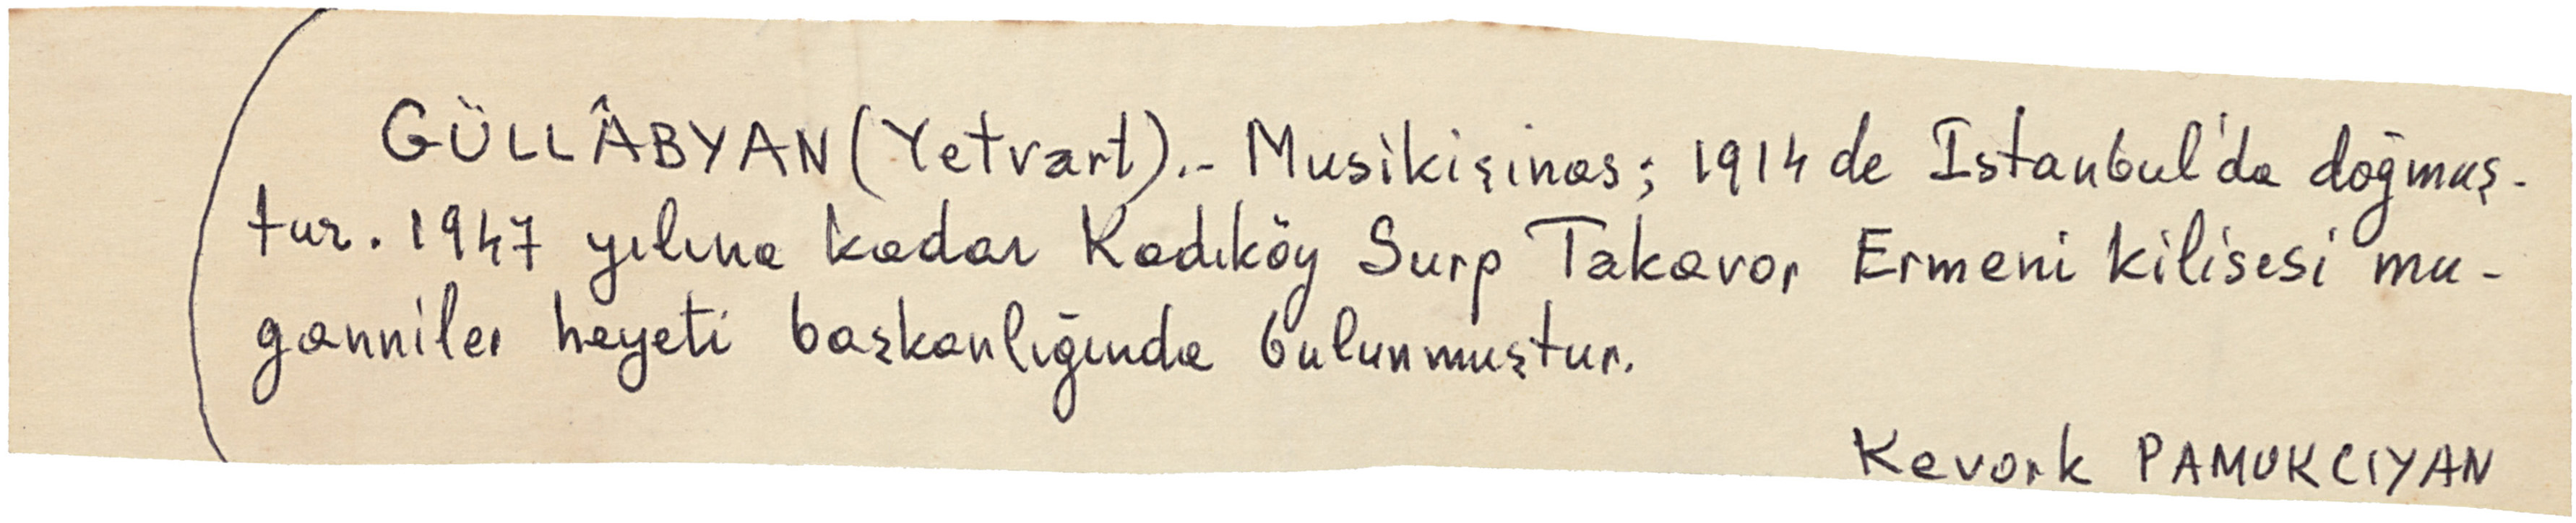 GÜLLÂBYAN (Yetvart).- Musikişinas; 1914 de Istanbul'da doğmuş-
tur. 1947 yılına kadar Kadıköy Surp Takavor Ermeni kilisesi mu-
ganniler heyeti başkanlığında bulunmuştur.
Kevork PAMUKCIYAN